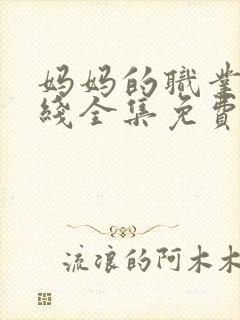 妈妈的職業
綫全集免費
流浪的阿木木